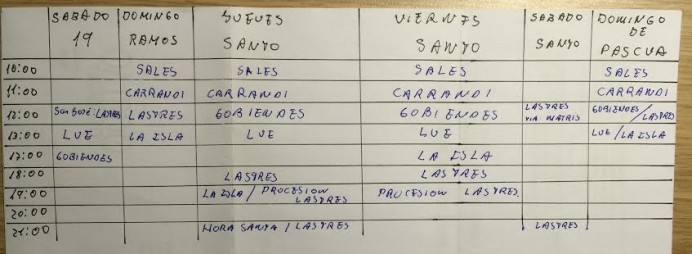 SABADO 19 DOMINGO RAMOS JUEVES SANTO VIERNES SANTO SABADO SANTO DOMINGO DE PASCUA
10:00 SALES SALES SALES SALES
11:00 CARRANDI CARRANDI CARRANDI CARRANDI
12:00 San José: LASTRES LASTRES GOBIENDES GOBIENDES LASTRES VIA MATRIS GOBIENDES/LASTRES
13:00 LUE LA ISLA LUE LUE LUE/LA ISLA
17:00 GOBIENDES LA ISLA
18:00 LASTRES LASTRES
19:00 LA ISLA / PROCESION LASTRES PROCESION LASTRES
20:00
21:00 HORA SANTA / LASTRES LASTRES